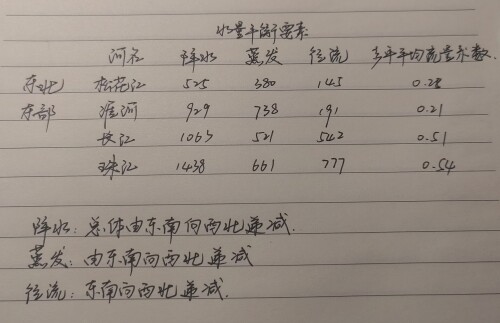 水量平衡要素
河名 降水 蒸发 径流 多年平均流量系数.
东北 松花江 525 380 145 0.28
东部 淮河 929 738 191 0.21
长江 1063 521 542 0.51
珠江 1438 661 777 0.54
降水: 总体由东南向西北递减.
蒸发: 由东南向西北递减
径流: 东南向西北递减.